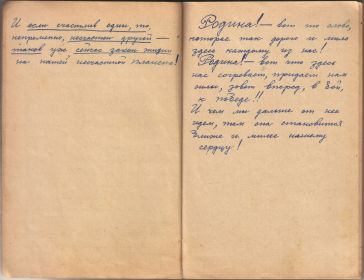 И если счастлив один, то,
непременно, несчастен другой —
таков уже сейчас закон жизни
на нашей несчастной планете!
Родина! — вот то слово,
которое так дорого и мило
здесь каждому из нас!
Родина! — вот что здесь
нас согревает, придает нам
силы, зовет вперед, в бой,
к победе!!
И чем мы дальше от нее
идем, тем она становится
ближе и милее нашему
сердцу!